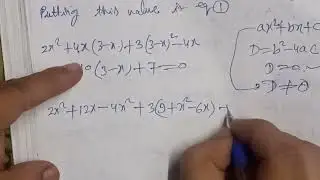 Putting this value in eq ①
2x² + 4x(3-x) + 3(3-x)² - 4x
(3-x) + 7 = 0
2x² + 12x - 4x² + 3(9 + x² - 6x) -
ax² + bx + c
D = b² - 4ac
D = 0
D ≠ 0